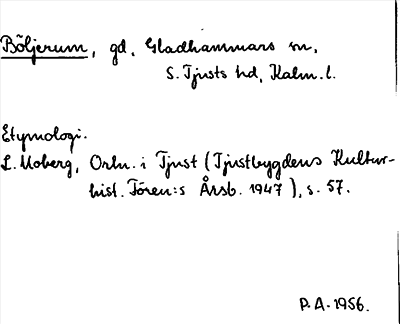 Böljerum, gd, Gladhammars sn,
S. Tjusts hd, Kalm. l.
Etymologi.
L. Moberg, Ortn. i Tjust (Tjustbygdens Kultur-
hist. Fören:s Årsb. 1947), s. 57.
P.A. 1956.